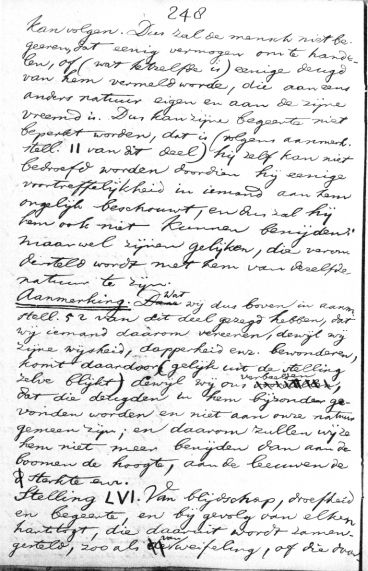 248
kan volgen. Dus zal de mensch niet be-
geeren, dat eenig vermogen om te hande-
len, of (wat hetzelfde is) eenige deugd
van hem vermeld worde, die aan eens
anders natuur eigen en aan de zijne
vreemd is. Dus kan zijne begeerte niet
beperkt worden, dat is (volgens aanmerk.
stell. 11 van dit deel) hij zelf kan niet
bedroefd worden doordien hij eenige
voortreffelijkheid in iemand aan hem
ongelijk beschouwt, en dus zal hij
hem ook niet kunnen benijden:
maar wel zijnen gelijken, die veron-
dersteld wordt met hem van dezelfde
natuur te zijn.
Aanmerking. Wat wij dus boven in aanm.
stell. 52 van dit deel gezegd hebben, dat
wij iemand daarom vereeren, dewijl wij
zijne wijsheid, dapperheid enz. bewonderen,
komt daardoor (gelijk uit de stelling
zelve blijkt) dewijl wij ons verbeelden,
dat die deugden in hem bijzonder ge-
vonden worden en niet aan onze natuur
gemeen zijn; en daarom zullen wij ze
hem niet meer benijden dan aan de
boomen de hoogte, aan de leeuwen de
sterkte enz.
Stelling LVI. Van blijdschap, droefheid
en begeerte, en bij gevolg van elken
hartstogt, die daaruit wordt zamen-
gesteld, zoo als van weifeling, of die van